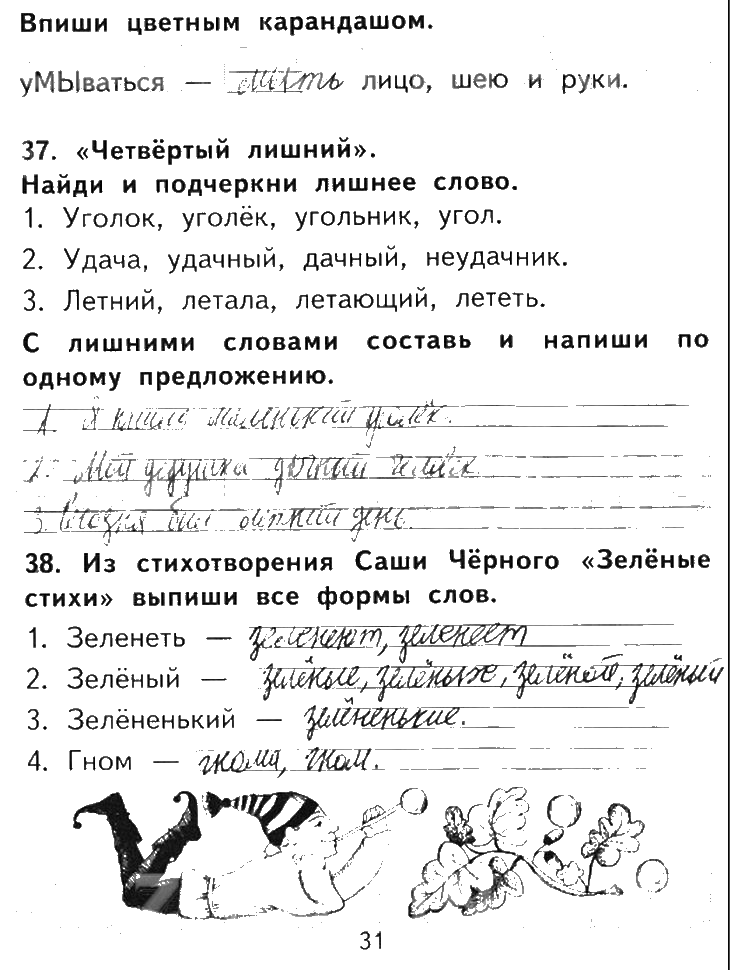 Впиши цветным карандашом.
уМЫваться — мыть лицо, шею и руки.
37. «Четвёртый лишний».
Найди и подчеркни лишнее слово.
1. Уголок, уголёк, угольник, угол.
2. Удача, удачный, дачный, неудачник.
3. Летний, летала, летающий, лететь.
С лишними словами составь и напиши по
одному предложению.
1. Я маленький уголёк.
2. Мой дедушка дачный человек.
3. был летний день.
38. Из стихотворения Саши Чёрного «Зелёные
стихи» выпиши все формы слов.
1. Зеленеть — зеленеют, зеленеет
2. Зелёный — зелёные, зелёных, зелёной, зелёный
3. Зелёненький — зелёненькие.
4. Гном — гнома, гном.
31